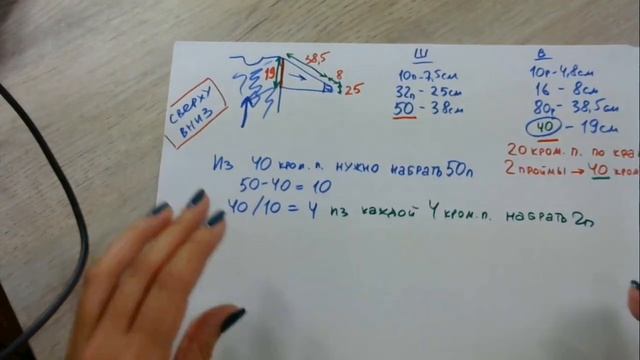 38,5
19
8
25
СВЕРХУ
ВНИЗ
Ш
10п-7,5см
32п-25см
50-38см
В
10р-4,8см
16-8см
80р-38,5см
40-19см
20 кром. п. по кра
2 проймы → 40 кром
Из 40 кром.п. нужно набрать 50п
50-40=10
40/10=4 из каждой 4 кром.п. набрать 2п